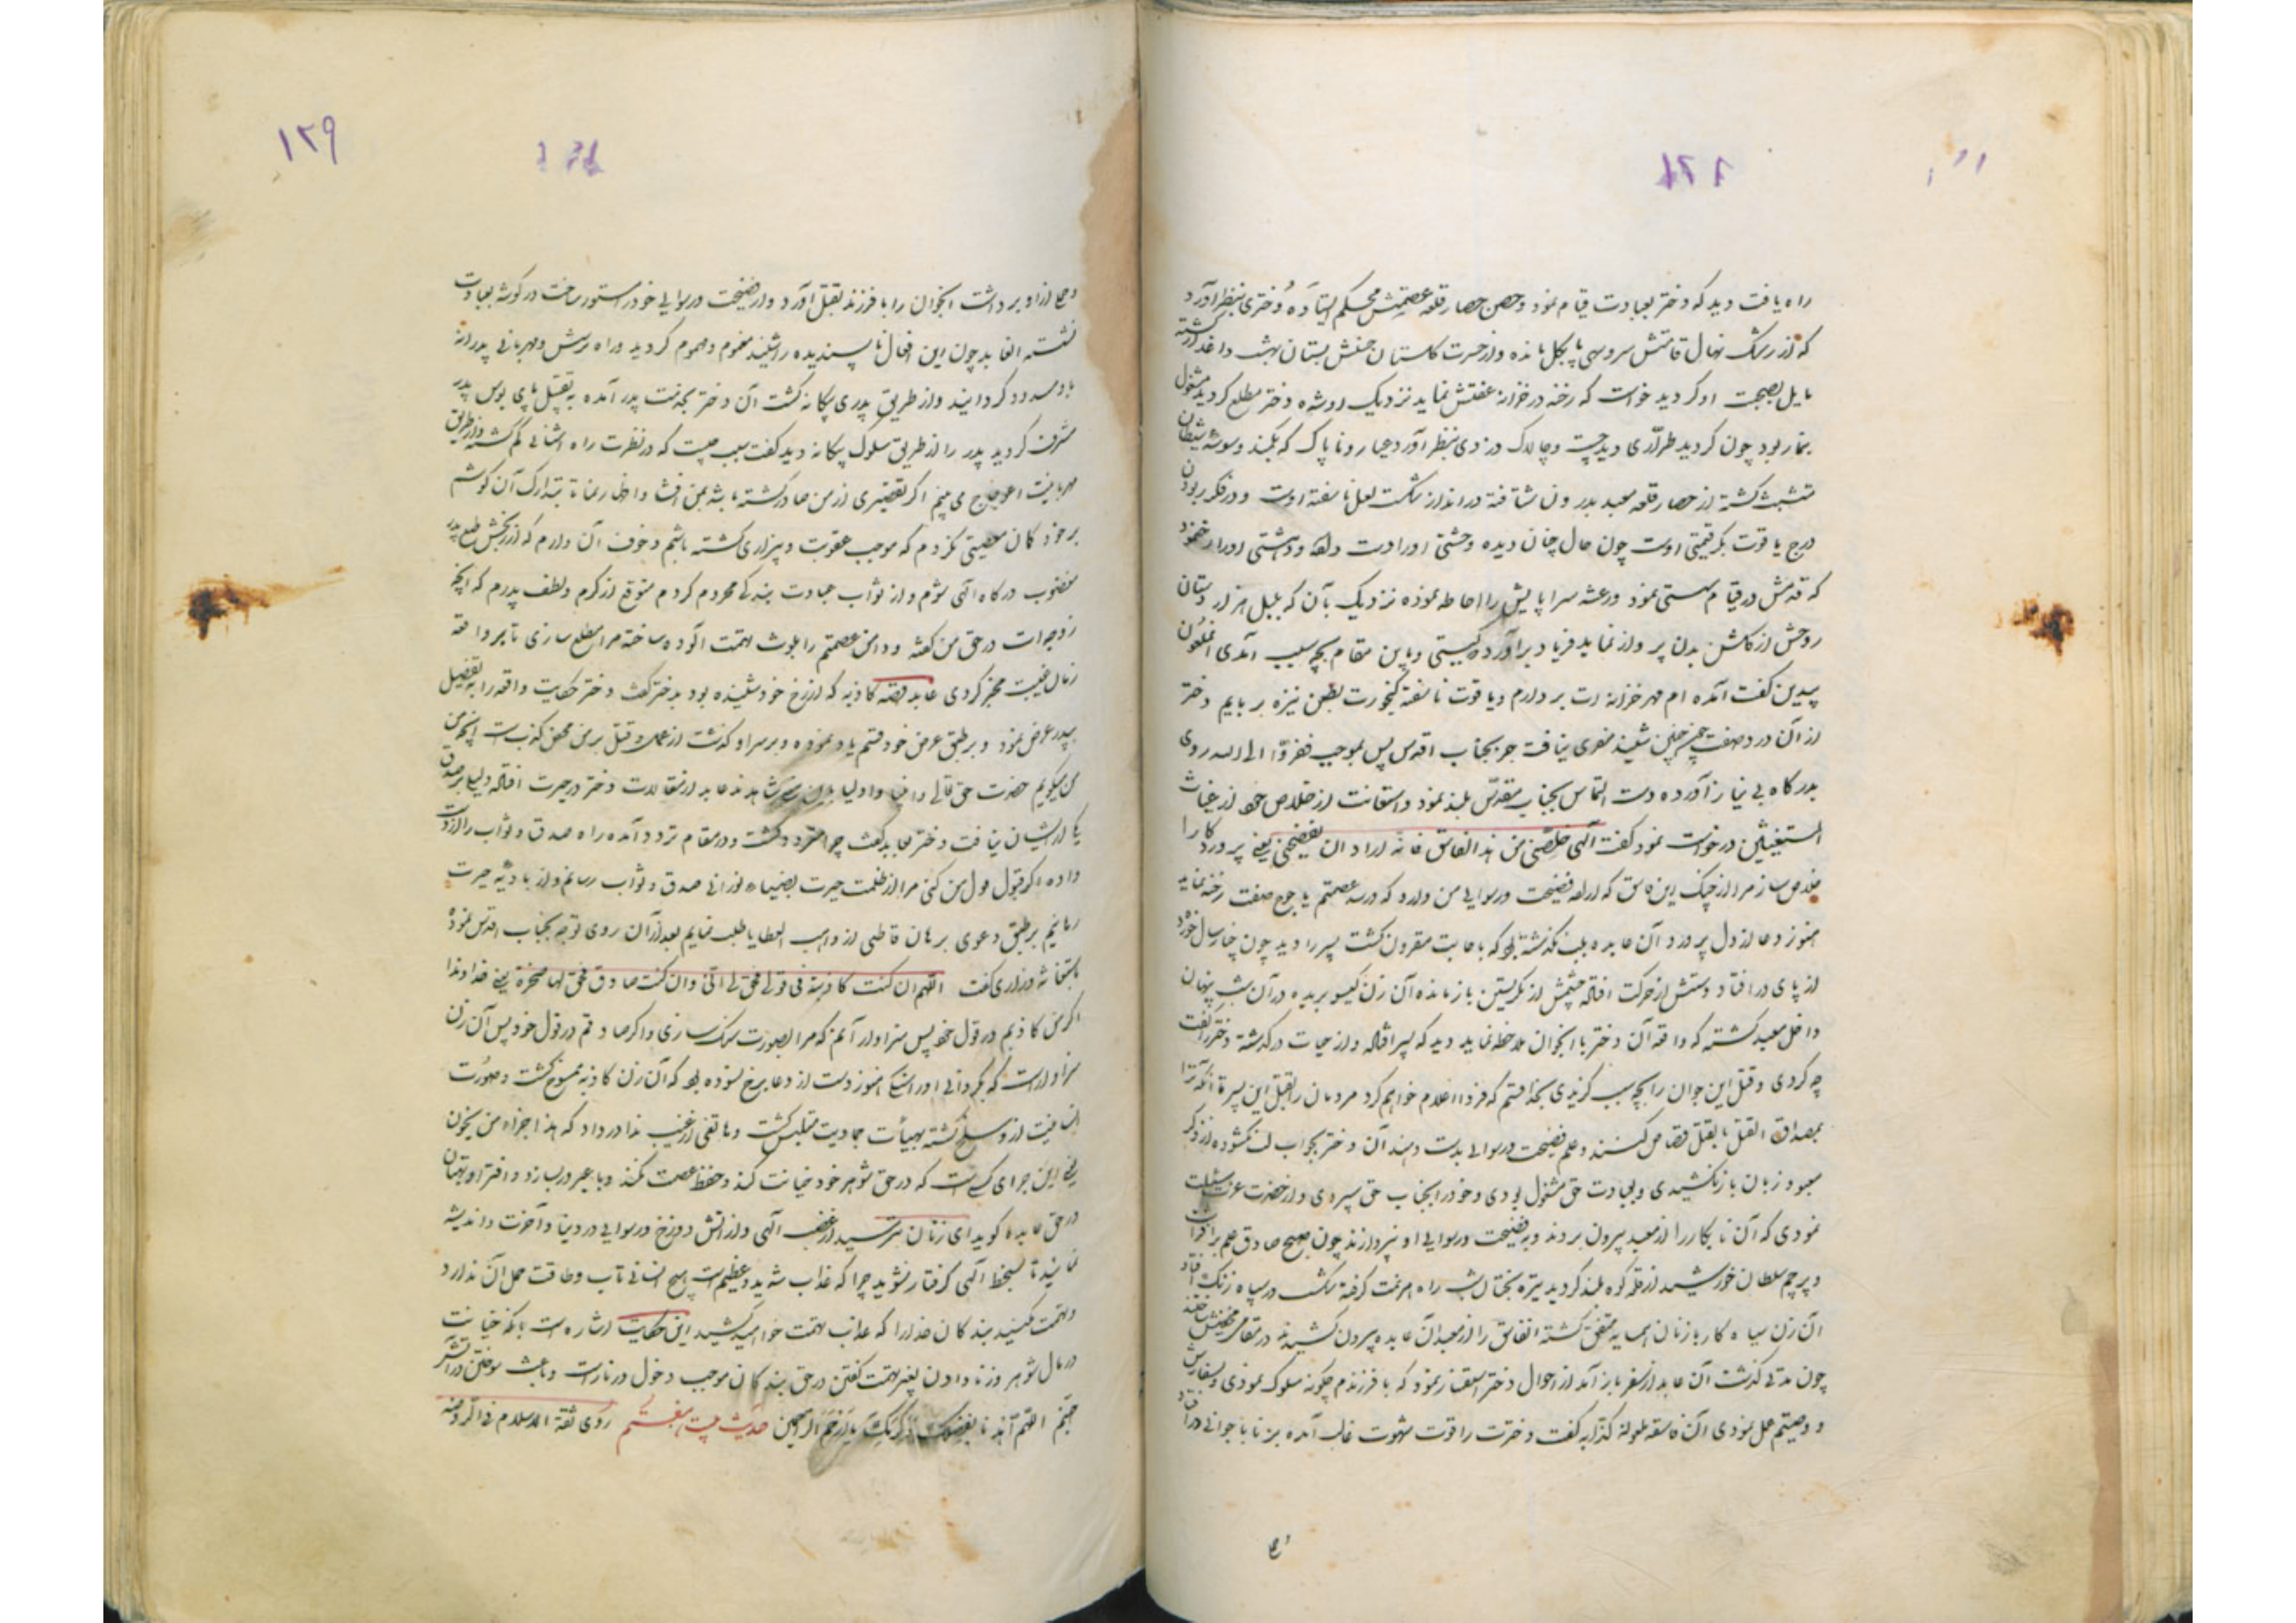 راه یافت دید که دختر بعبادت قیام نموده و حصن حصار قلعه عصمتش محکم ایستاده دختری بنظر آورد
که از رشک نهال قامتش سرو سهی پا بگل مانده و از حسرت گلستان حسنش بستان بهشت داغدار گشته
مایل بصحبت او گردید خواست که رخنه در خزانه عفتش نماید نزدیک او شده دختر مطلع گردید مشغول
نماز بود چون گردید طراری دید چست و چالاک دزدی بنظر آورد عیار و ناپاک که بکمند وسوسه شیطان
متشبث گشته از حصار قلعه معبد بدرون شتافته در انداز شکست لعل ناسفته اوست و در فکر بودن
درج یاقوت بکر قیمتی اوست چون حال چنان دیده وحشتی او را دست و دهشتی او را رخ نمود
که قدمش در قیام سستی نمود و رعشه سراپایش را احاطه نموده نزدیک بآن که بلبل هزار دستان
روحش از گلشن بدن پرواز نماید فریاد برآورد که کیستی و باین مقام بچه سبب آمدی آن ملعون
بیدین گفت آمده ام مهر خزانه ات بردارم و یاقوت ناسفته گنجورت بطعن نیزه بربایم دختر
از آن دزد صفت چنین شنید مفری نیافت جز بجناب اقدس پس بموجب ففروا الی الله روی
بدرگاه بی نیاز آورده دست التماس بجناب مقدس بلند نمود و استعانت از خلاص خود از غیاث
المستغیثین درخواست نمود گفت الهی خلصنی من هذا الفاسق فانه اراد ان یفضحنی یعنی پروردگارا
خلاص ساز مرا از چنگ این فاسق که اراده فضیحت و رسوایی من دارد که در سد عصمتم یاجوج صفت رخنه نماید
هنوز دعا از دل پر درد آن عابده بلب نگذشته بود که باجابت مقرون گشت پسر را دید چون خورده
از پای درافتاد و دستش از حرکت افتاده چشمش از نگریستن بازمانده آن زن گیسو بریده در آن شب پنهان
داخل معبد گشته که واقعه آن دختر با آنجوان ملاحظه نماید دید که پسر افتاده و از حیات درگذشته دختر را گفت
چه کردی و قتل این جوان را بچه سبب گزیدی بخدا قسم که فردا اعلام خواهم کرد مردمان را بقتل این پسر تا آنکه ترا
بمصداق القتل بالقتل قصاص کنند و علم فضیحت و رسوایی بدست دهند آن دختر بجواب لب نگشوده از ذکر
معبود زبان باز نکشیدی و بعبادت حق مشغول بودی و خود را بجناب حق سپردی و از حضرت عزت مسئلت
نمودی که آن نابکار را از معبد بیرون بردند و بفضیحت و رسوایی او نپردازند چون صبح صادق علم برافراشت
و پرچم سلطان خورشید از قله کوه بلند گردید تیره بختان شب راه هزیمت گرفته سپاه زنگ افتاد
آن زن سیاه کار با زنان همسایه متفق گشته آنفاسق را از معبد آن عابده بیرون کشیدند در مقام
چون مدتی گذشت آن عابد از سفر باز آمد از احوال دختر استفسار نمود که با فرزندم چگونه سلوک نمودی و بسفارش
و وصیتم عمل نمودی آن فاسقه ملعونه کذابه گفت دخترت را قوت شهوت غالب آمده بزنا با جوانی درافتاد
و حمل
۱۲۹
و حمل از او برداشت آنجوان را با فرزند بقتل آورد و از فضیحت و رسوایی خود را مستور ساخت در گوشه بعبادت
نشسته آنعابد چون این افعال ناپسندیده را شنید مغموم و مهموم گردید و راه پرسش و مهربانی پدرانه
باو مسدود گردانید و از طریق پدری بیگانه گشت آن دختر بخدمت پدر آمده به تقبیل پای بوس پدر
مشرف گردید پدر را از طریق سلوک بیگانه دید گفت سبب چیست که در نظرت راه آشنایی گم گشته و از طریق
مهربانیت اعوجاج می بینم اگر تقصیری از من صادر گشته باشد بمن افشا و اظهار نما تا بتدارک آن کوشم
بر خود گمان معصیتی نبردم که موجب عقوبت و بیزاری گشته باشم و خوف آن دارم که از رنجش طبع پدر
مغضوب درگاه الهی شوم و از ثواب عبادت بندگی محروم گردم متوقع از کرم و لطف پدرم که آنچه
زوجه ات در حق من گفته و دامن عصمتم را بلوث تهمت آلوده ساخته مرا مطلع سازی تا بر واقعه
زمان غیبت مخبر گردی عابد قصه کاذبه که از زن خود شنیده بود بدختر گفت دختر حکایت واقعه را بتفصیل
بپدر عرض نمود و بر طبق عرض خود قسم یاد نموده و بر سر او گذشت از عمل و قتل بر من محض کذبست آنچه من
من میگویم حضرت حق تعالی و انبیا و اولیا بر این شاهدند عابد از مقالات دختر در حیرت افتاده دلیلی بر صدق
یکی از ایشان نیافت دختر بعابد گفت چرا متردد گشت و در مقام تردد آمده راه صدق و ثواب را از دست
داده اگر قبول قول من کنی مرا از ظلمت حیرت بضیاء نورانی صدق و ثواب رسانم و از بادیه حیرت
رهانیم بر طبق دعوی برهان قاطعی از واهب العطایا طلب نمایم بعد از آن روی توجه بجناب اقدس نموده
باستغاثه و زاری گفت اللهم ان کنت کاذبة فی قولی فحق لی انی وان کنت صادق فحق لها صخرة یعنی خداوندا
اگر من کاذبم در قول خود پس سزاوار آنم که مرا بصورت سنگ سازی و اگر صادقم در قول خود پس آن زن
سزاوار است که بگردانی او را سنگ هنوز دست از دعا برخ نسوده بود که آن زن کاذبه ممسوخ گشت و صورت
انسانیت از او مسلخ گشته بهیأت جمادیت متلبس گشت و هاتفی از غیب ندا در داد که هذا جزاء من یخون
یعنی این جزای کسیست که در حق شوهر خود خیانت کند و حفظ عصمت نکند و با غیر در سازد و افترا و بهتان
در حق عابدها گوید ای زنان بترسید از غضب الهی و از آتش دوزخ و رسوایی در دنیا و آخرت و اندیشه
نمایید تا بسخط الهی گرفتار نشوید چرا که عذاب شدید و عظیم است هیچ انسانی تاب و طاقت حمل آن ندارد
و تهمت مکنید بندگان خدا را که عذاب تهمت خواهید کشید این حکایت اشاره است بآنکه خیانت
در مال شوهر و زنا دادن بغیر و تهمت گفتن در حق بندگان موجب دخول در نار است و باعث سوختن در آتش
جهنم اللهم یا ارحم الراحمین حدیث بیست و هفتم روی ثقة الاسلام فی الروضه